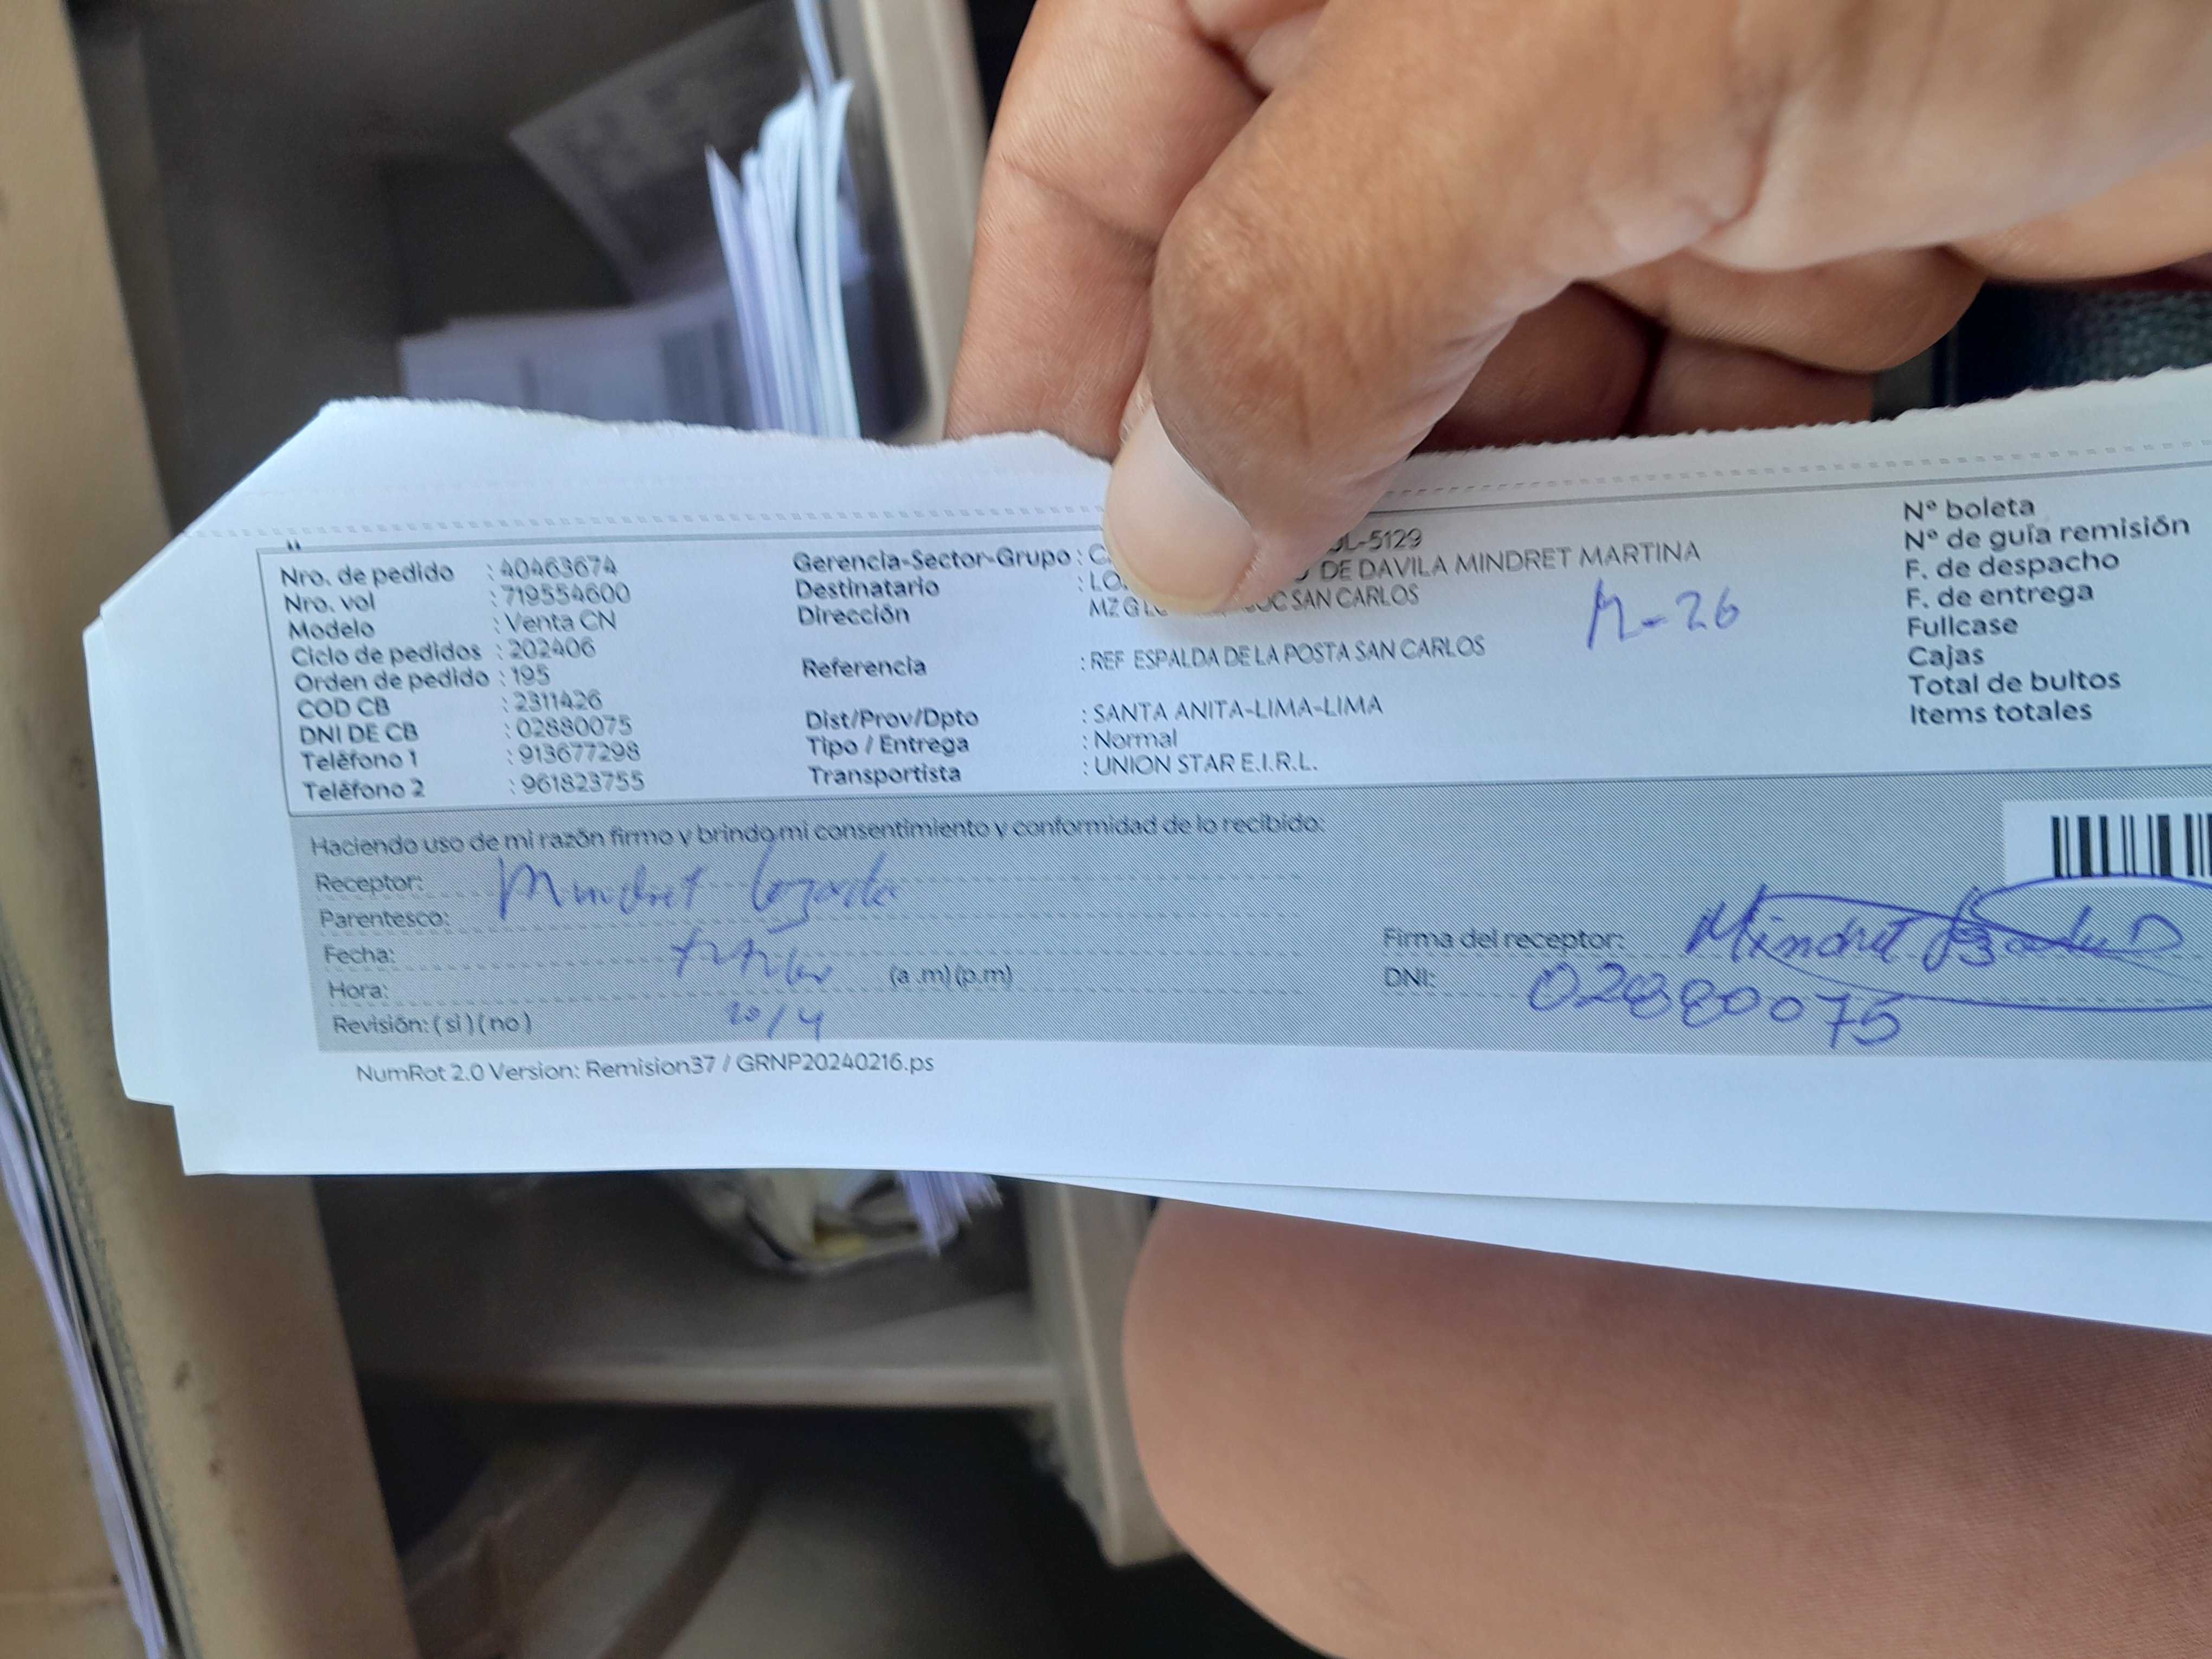 Nro. de pedido : 40463674
Nro. vol : 719554600
Modelo : Venta CN
Ciclo de pedidos : 202406
Orden de pedido : 195
COD CB : 2311426
DNI DE CB : 02880075
Teléfono 1 : 913677298
Teléfono 2 : 961823755
Gerencia-Sector-Grupo : C -5129
Destinatario : LO DE DAVILA MINDRET MARTINA
Dirección MZ G SAN CARLOS
-26
Referencia : REF ESPALDA DE LA POSTA SAN CARLOS
Dist/Prov/Dpto : SANTA ANITA-LIMA-LIMA
Tipo / Entrega : Normal
Transportista : UNION STAR E.I.R.L.
N° boleta
N° de guía remisión
F. de despacho
F. de entrega
Fullcase
Cajas
Total de bultos
Items totales
Haciendo uso de mi razón firmo y brindo mi consentimiento y conformidad de lo recibido:
Receptor: Mindret
Parentesco:
Fecha:
Hora: (a .m) (p.m)
Revisión: ( si ) ( no ) 20/4
Firma del receptor: Mindret
DNI: 02880075
NumRot 2.0 Version: Remision37 / GRNP20240216.ps